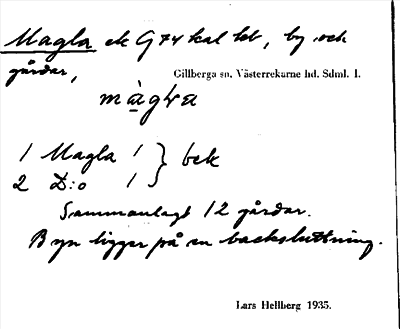 Magla ek G74 kal kt, by och
gårdar,
Gillberga sn. Västerrekarne hd. Sdml. l.
màgɫa
1 Magla 1 } bek
2 D:o 1
Sammanlagt 12 gårdar.
Byn ligger på en backsluttning.
Lars Hellberg 1935.